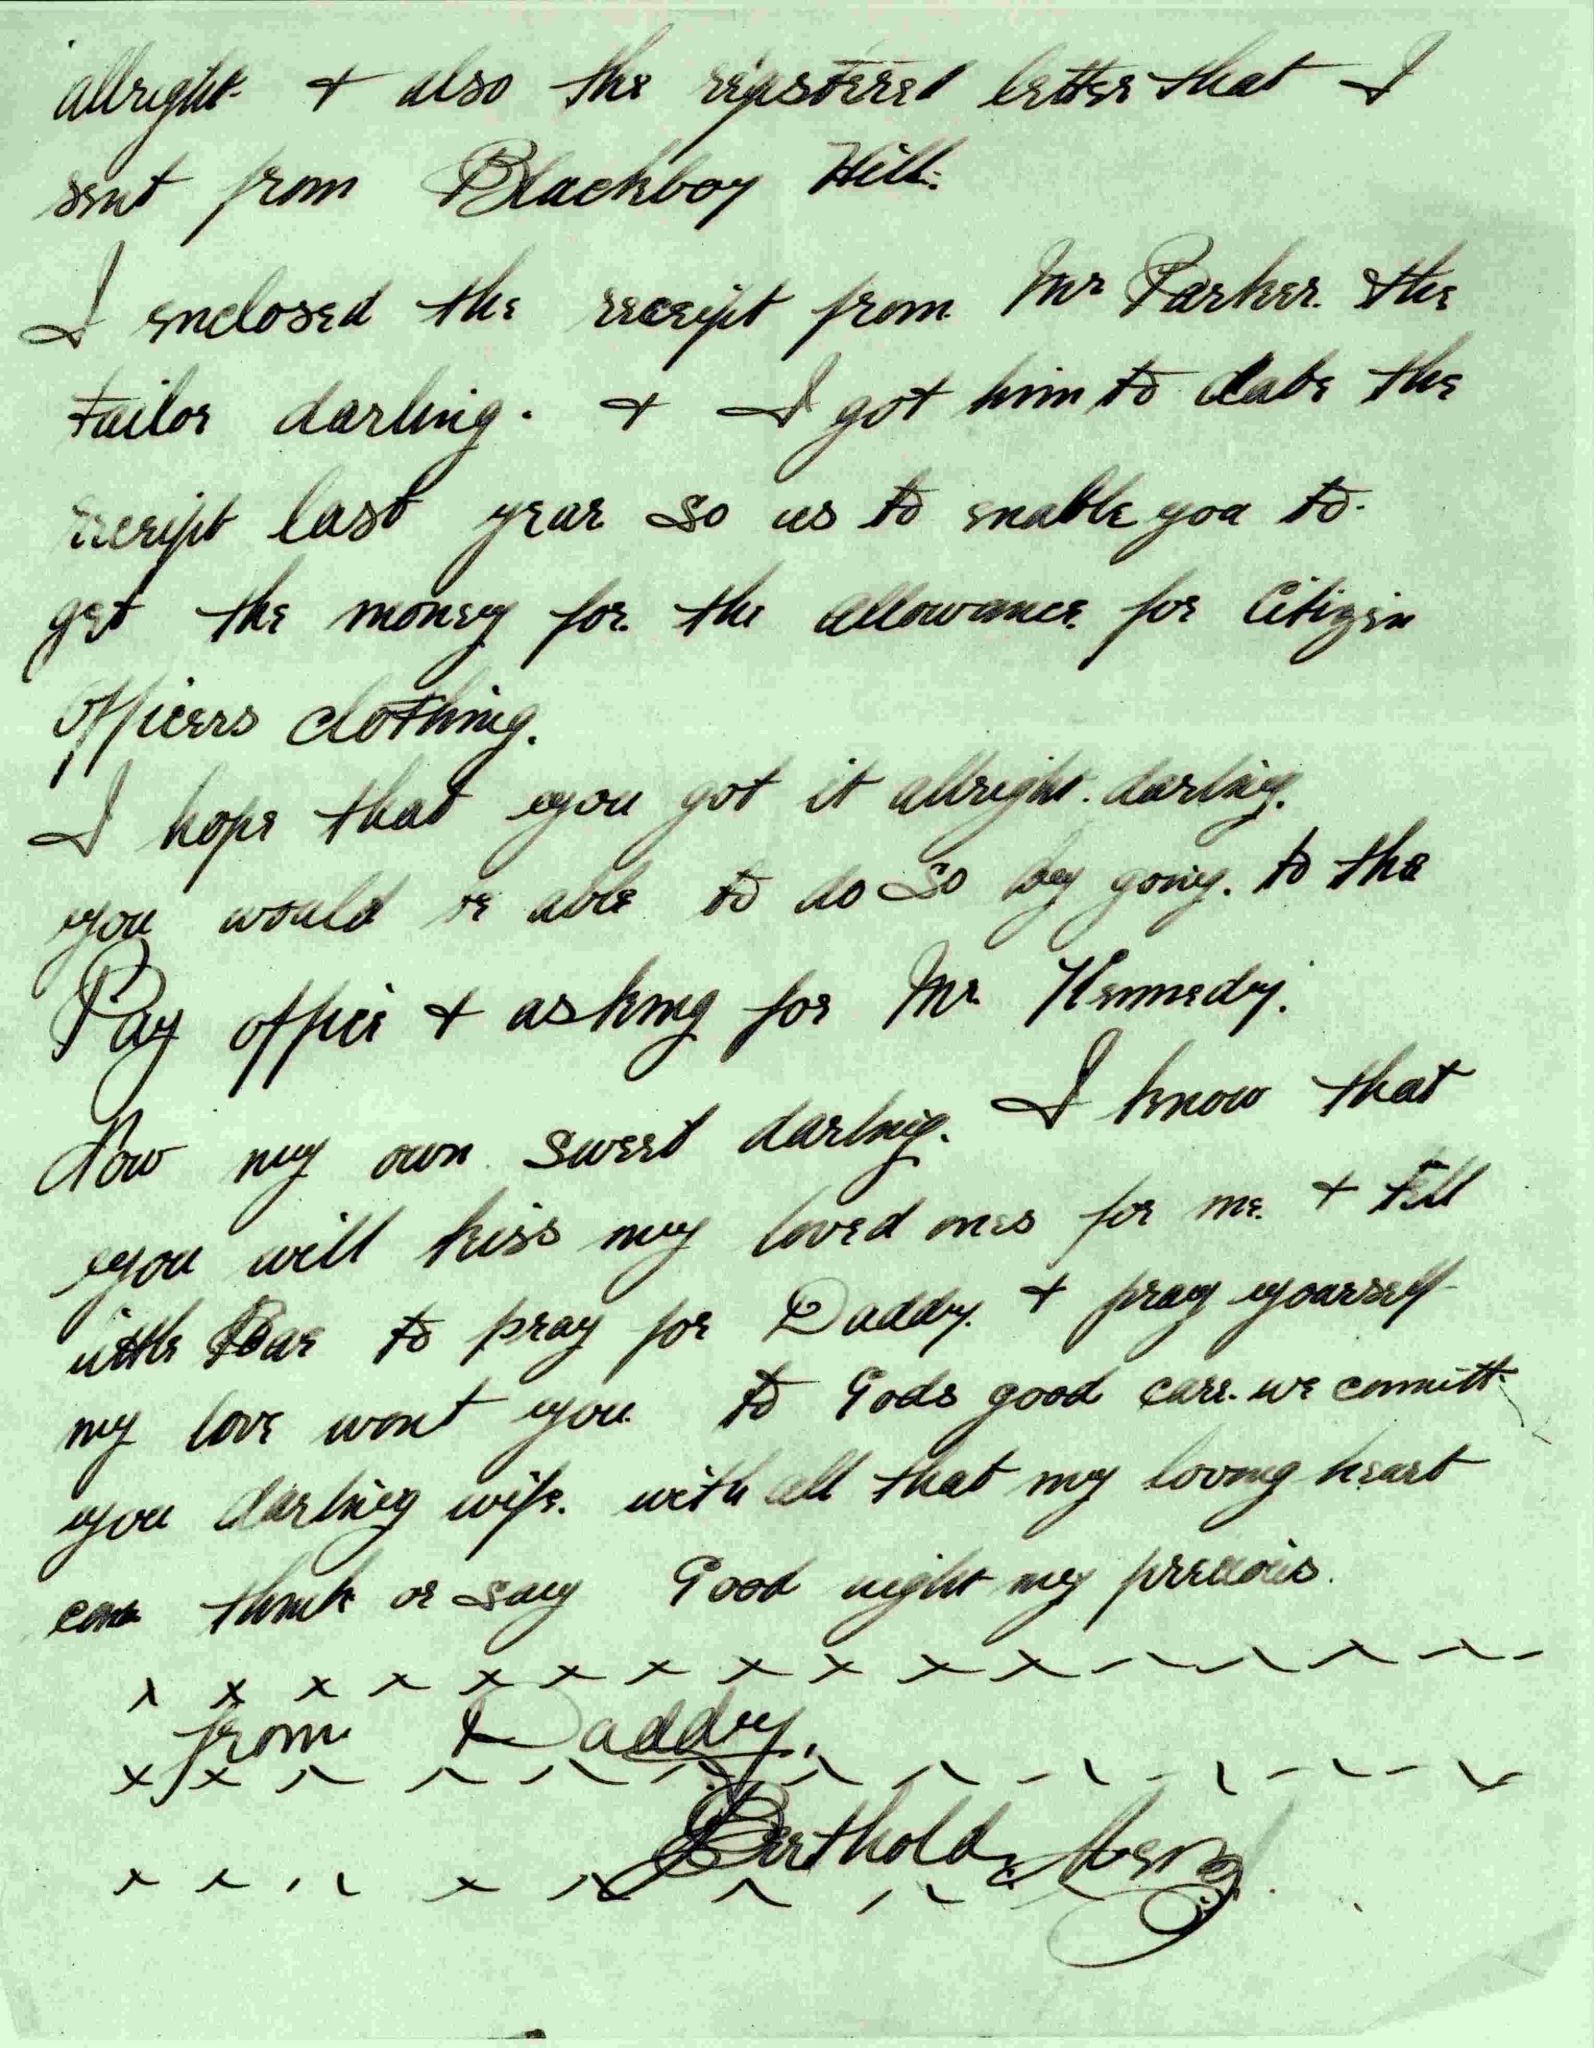 allright & also the registered letter that I
sent from Blackboy Hill.
I enclosed the receipt from Mr Parker. the
tailor darling. & I got him to date the
receipt last year so us to enable you to.
get the money for the allowance for Citizen
Officers clothing.
I hope that you got it allright. darling.
you would be able to do so by going. to the
Pay office & asking for Mr Kennedy.
Now my own sweet darling. I know that
you will kiss my loved ones for me. & tell
little to pray for Daddy. & pray yourself
my love wont you. to Gods good care. we committ.
you darling wife. with all that my loving heart
can think or say Good night my precious.
x x x x x x x x x x x x x x x x
from Daddy.
x x x x x x x x x x x x x x
Berthold
x x x x x x x x